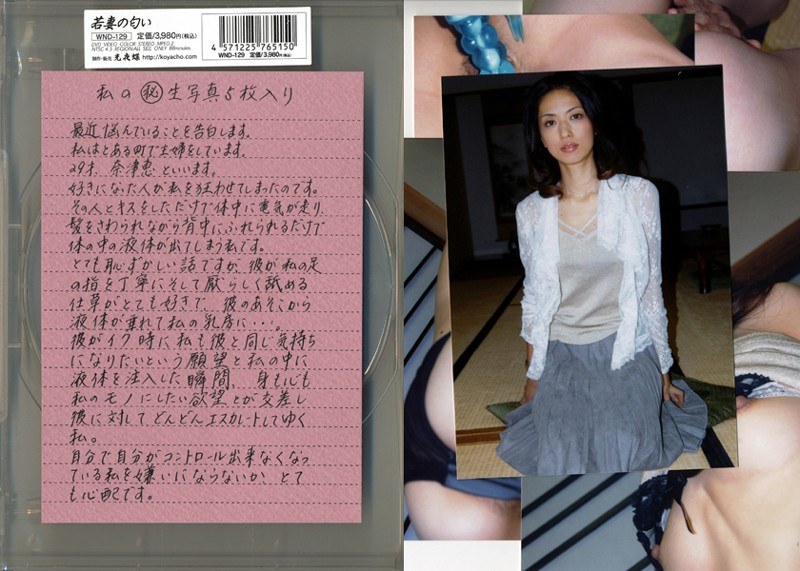 若妻の匂い
WND-129 定価/3,980円(税込)
DVD VIDEO COLOR STEREO MPEG 2
NTSC 4:3 REGION:ALL SEE ONLY 88minutes
制作・販売 光夜蝶 http://koyacho.com
4 571225 765150
WND-129 定価/3,980円(税込)
私の㊙生写真5枚入り
最近悩んでいることを告白します。
私はとある町で主婦をしています。
29才、奈津恵といいます。
好きになった人が私を狂わせてしまったのです。
その人とキスをしただけで体中に電気が走り、
髪をさわられながら背中にふれられるだけで
体の中の液体が出てしまう私です。
とても恥ずかしい話ですが、彼が私の足
の指を丁寧にそして厭らしく舐める
仕草がとても好きで、彼のあそこから
液体が垂れて私の乳房に・・・。
彼がイク時に私も彼と同じ気持ち
になりたいという願望と私の中に
液体を注入した瞬間、身も心も
私のモノにしたい欲望とが交差し
彼に対してどんどんエスカレートしてゆく
私。
自分で自分がコントロール出来なくなっ
ている私を嫌いにならないか、とて
も心配です。